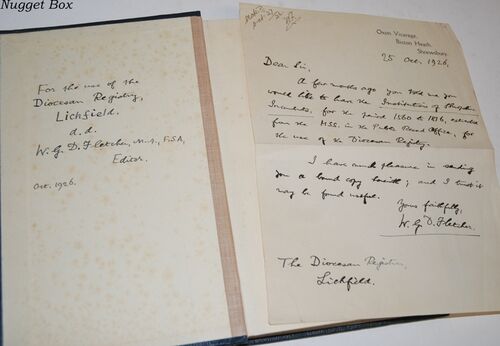 Nugget Box
For the use of the
Diocesan Registry,
Lichfield.
d.d.
W. G. D. Fletcher, M.A., F.S.A,
Editor.
Oct. 1926.
Oxon Vicarage,
Bicton Heath,
Shrewsbury.
25 Oct. 1926.
Dear Sir,
A few months ago you told me you
would like to have the Institutions of Shropshire
Incumbents, for the period 1560 to 1876, extracted
from the MSS. in the Public Record Office, for
the use of the Diocesan Registry.
I have much pleasure in sending
you a bound copy herewith; and I trust it
may be found useful.
Yours faithfully,
W. G. D. Fletcher.
The Diocesan Registry,
Lichfield.